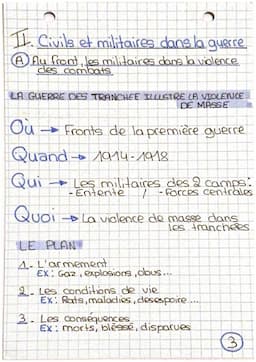 II. Civils et militaires dans la guerre
A Au front, les militaires dans la violence
des combats
LA GUERRE DES TRANCHÉE ILLUSTRE LA VIOLENCE
DE MASSE
Où → Fronts de la première guerre
Quand → 1914-1918
Qui → Les militaires des 2 camps:
- Entente / - Forces centrales
Quoi → La violence de masse dans
les tranchées
LE PLAN
1. L'armement
EX: Gaz, explosions, obus...
2. Les conditions de vie
EX: Rats, maladies, desespoire...
3. Les conséquences
EX: morts, blessé, disparues
3